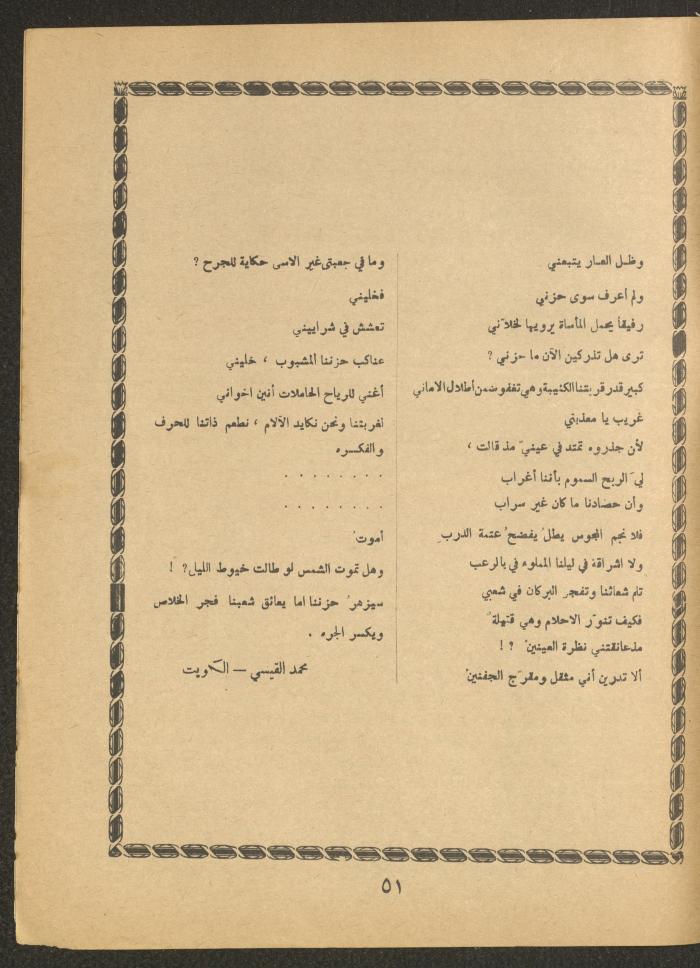 وظـل العـار يتبعني
ولم أعرف سوى حزني
رفيقاً يحمل المأساة يرويها لخلاّني
ترى هل تدركين الآن ما حزني ؟
كبير قدر قربتنا الكئيبة وهي تغفو ضمن أطلال الاماني
غريب يا معذبتي
لأن جذروه تمتد في عينيّ مذ قالت ،
ليَ الريح السموم بأننا أغراب
وأن حصادنا ما كان غير سراب
فلا نجم المجوس يطلُ يفضحُ عتمة الدربِ
ولا اشراقة في ليلنا المملوء في بالرعب
تلم شعاثنا وتفجر البركان في شعبي
فكيف تنوّر الاحلام وهي قتيلةٌ
مذ عانقتني نظرة العينينْ ؟ !
ألا تدرين أني مثقل ومقرّح الجفنينْ
وما في جعبتي غير الاسى حكاية للجرح ؟
فخليني
تعشش في شراييني
عناكب حزننا المشبوب ، خليني
أغني للرياح الحاملات أنين اخواني
لغربتنا ونحن نكابد الآلام ، نطعم ذاتنا للحرف
والفكـره
. . . . . . . .
. . . . . . . .
أموتُ
وهل تموت الشمس لو طالت خيوط الليل? !
سيزهرُ حزننا اما يعانق شعبنا فجر الخلاص
ويكسر الجره .
محمد القيسي — الكويت
٥١